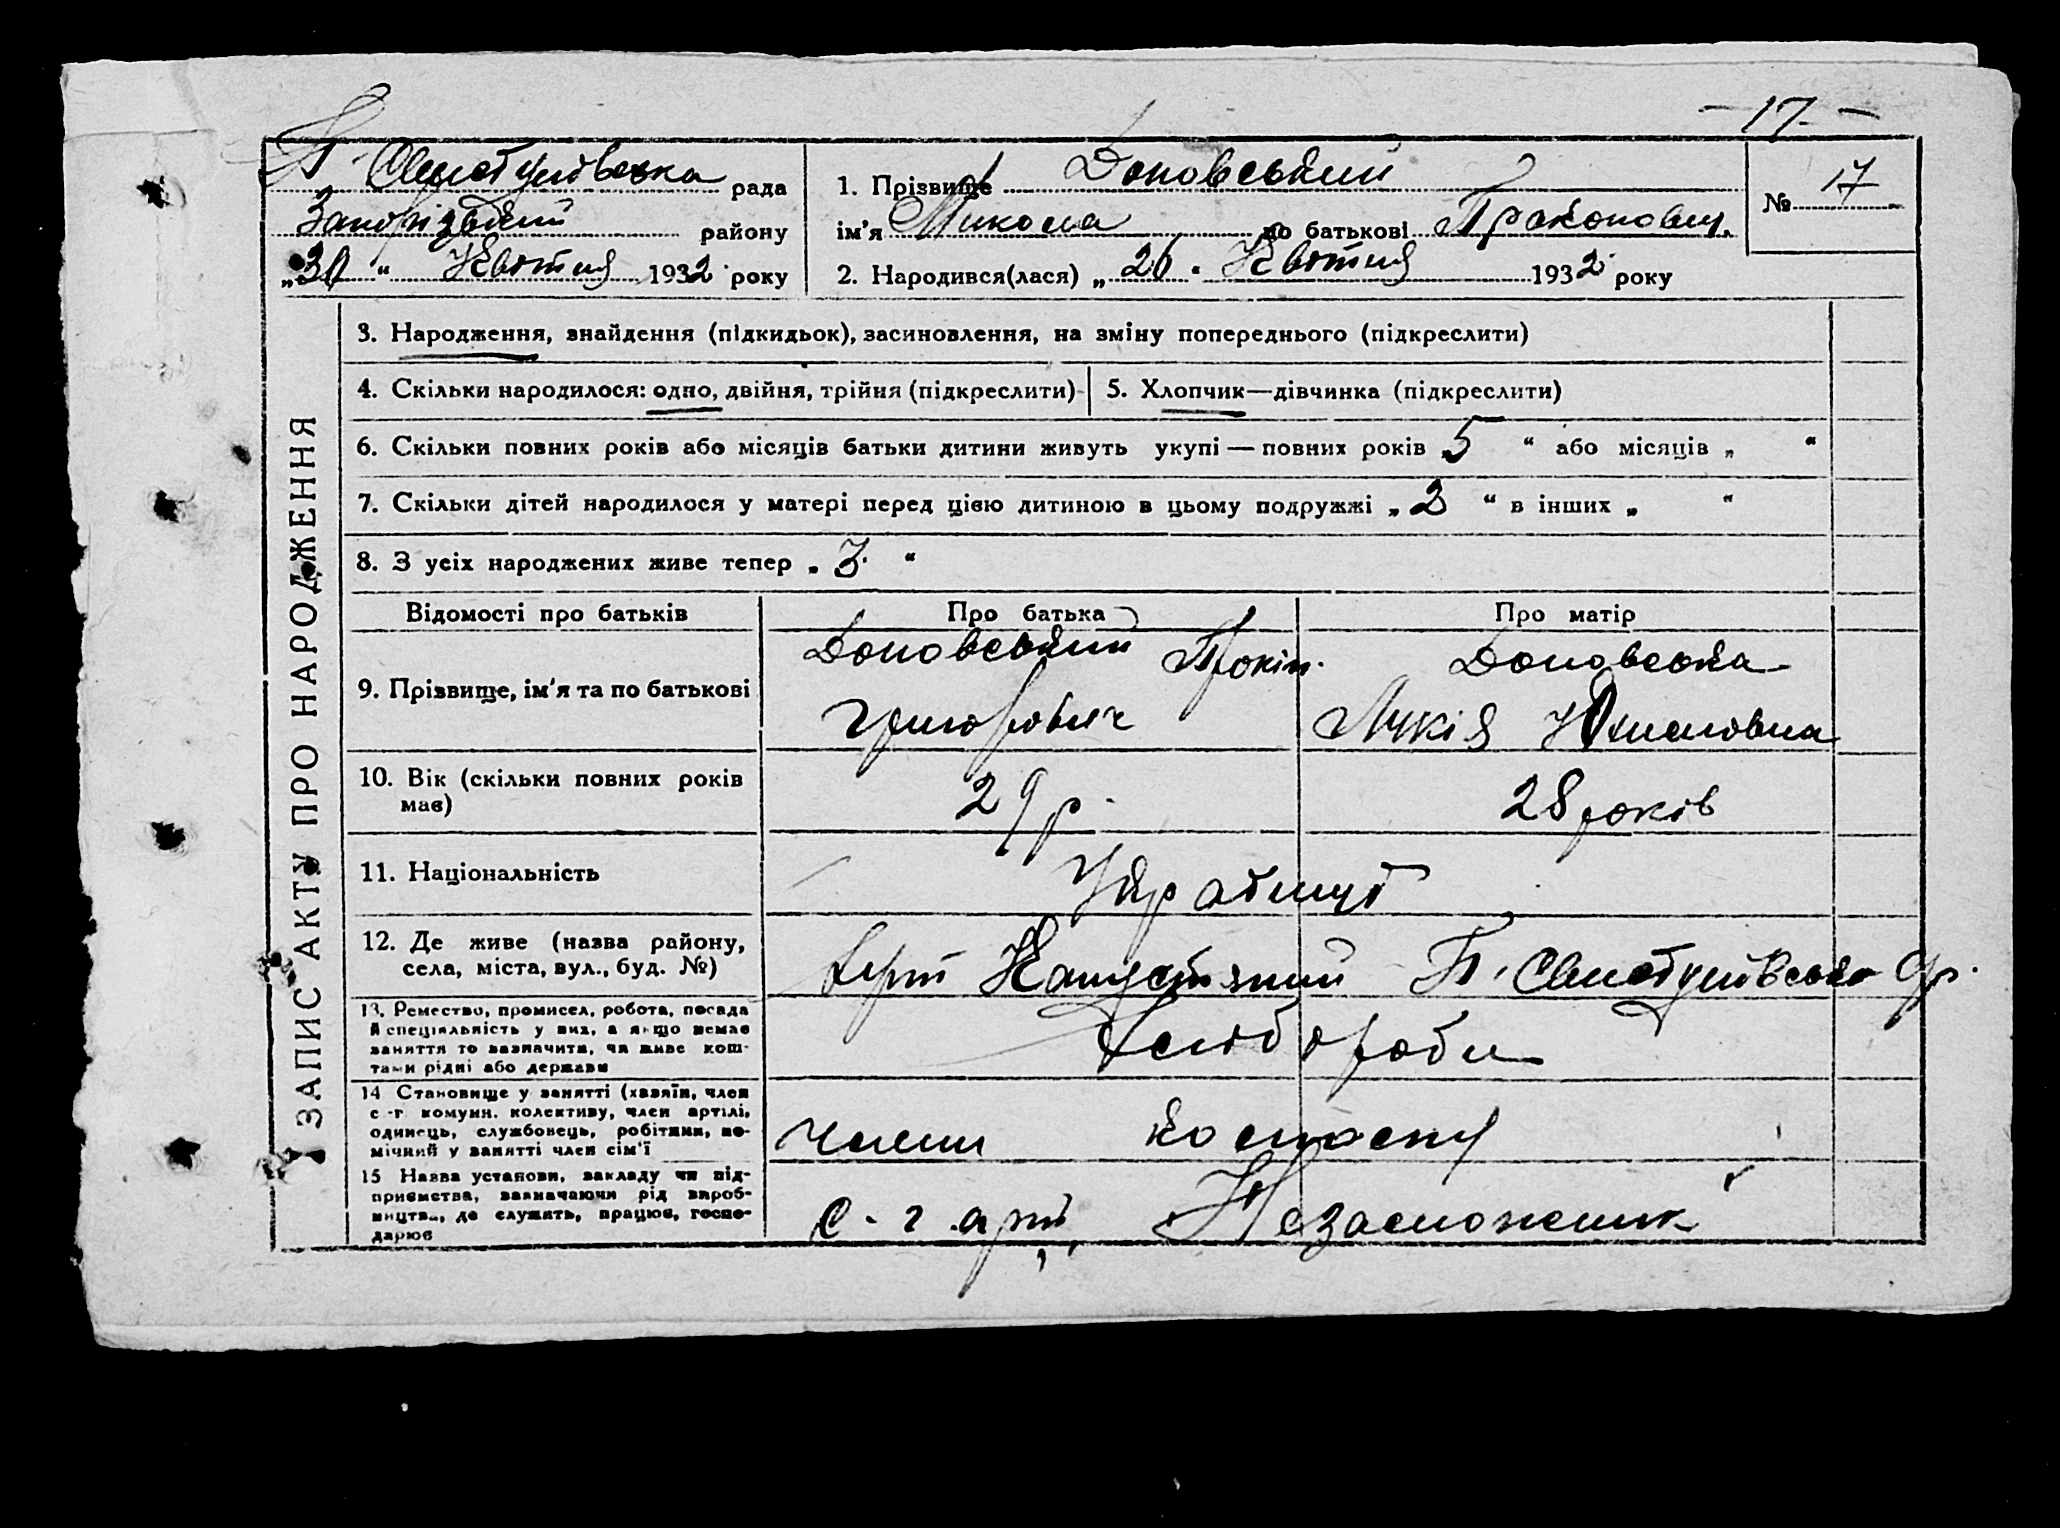 — 17 —
рада
Запорізький району
„30“ Квітня 1932 року
1. Прізвище Доновський
ім'я Микола по батькові Праконович.
2. Народився(лася) „26“ Квітня 1932 року
№ 17
ЗАПИС АКТУ ПРО НАРОДЖЕННЯ
3. Народження, знайдення (підкидьок), засиновлення, на зміну попереднього (підкреслити)
4. Скільки народилося: одно, двійня, трійня (підкреслити)
5. Хлопчик—дівчинка (підкреслити)
6. Скільки повних років або місяців батьки дитини живуть укупі — повних років „5“ або місяців „ “
7. Скільки дітей народилося у матері перед цією дитиною в цьому подружжі „2“ в інших „ “
8. З усіх народжених живе тепер „3“
Відомості про батьків Про батька Про матір
9. Прізвище, ім'я та по батькові
Доновський Прокіп.
Григорович
Доновська
Лукія
10. Вік (скільки повних років має)
29 р.
28 років
11. Національність
Украінці
12. Де живе (назва району, села, міста, вул., буд. №)
хут Капустяний П.
13. Ремество, промисел, робота, посада й спеціяльність у них, а якщо немає заняття то зазначити, чи живе коштами рідні або держави
Хлібороби
14 Становище у занятті (хазяїн, член с.-г. комуни, колективу, член артілі, одинець, службовець, робітник, помічний у занятті член сім'ї
члени колгоспу
15 Назва установи, закладу чи підприємства, зазначаючи рід виробництва, де служить, працює, господарює
с.-г. арт. Незаможник